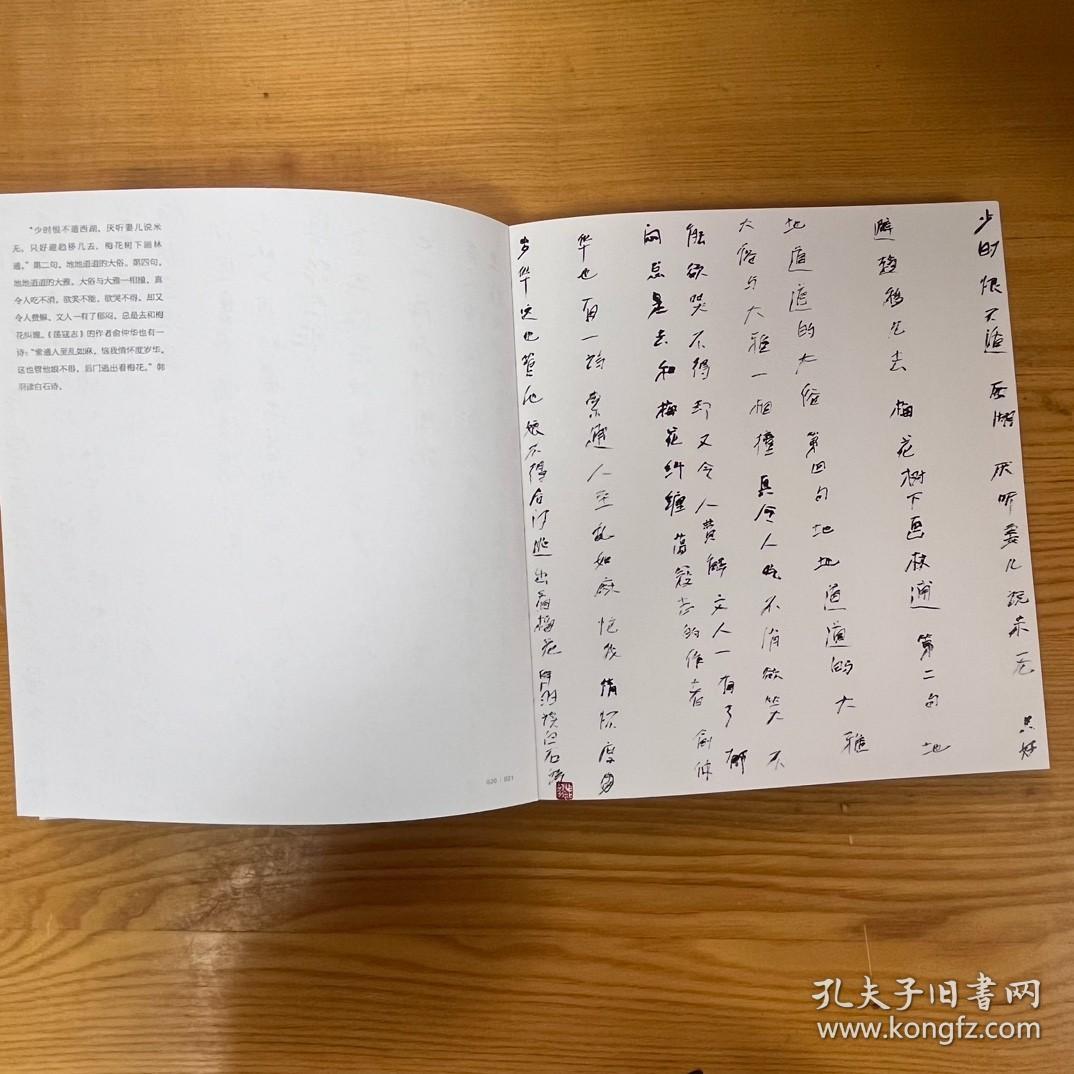 “少时恨不遁西湖，厌听妻儿说米
无。只好避趋移儿去，梅花树下画林
逋。”第二句，地地道道的大俗。第四句，
地地道道的大雅。大俗与大雅一相撞，真
令人吃不消。欲笑不能，欲哭不得，却又
令人费解。文人一有了郁闷，总是去和梅
花纠缠。《荡寇志》的作者俞仲华也有一
诗：“索逋人至乱如麻，恼我情怀度岁华。
这也管他娘不得，后门逃出看梅花。”韩
羽读白石诗。
020 | 021
少时恨不遁西湖 厌听妻儿说米无 只好
避趋 去 梅花树下画林逋 第二句地
地道道的大俗 第四句地地道道的大雅
大俗与大雅一相撞真令人吃不消欲笑不
能欲哭不得却又令人费解文人一有了郁
闷总是去和梅花纠缠荡寇志的作者俞仲
华也有一诗索逋人至乱如麻恼我情怀度
岁华这也管他娘不得后门逃出看梅花 韩羽读白石诗
孔夫子旧书网
www.kongfz.com